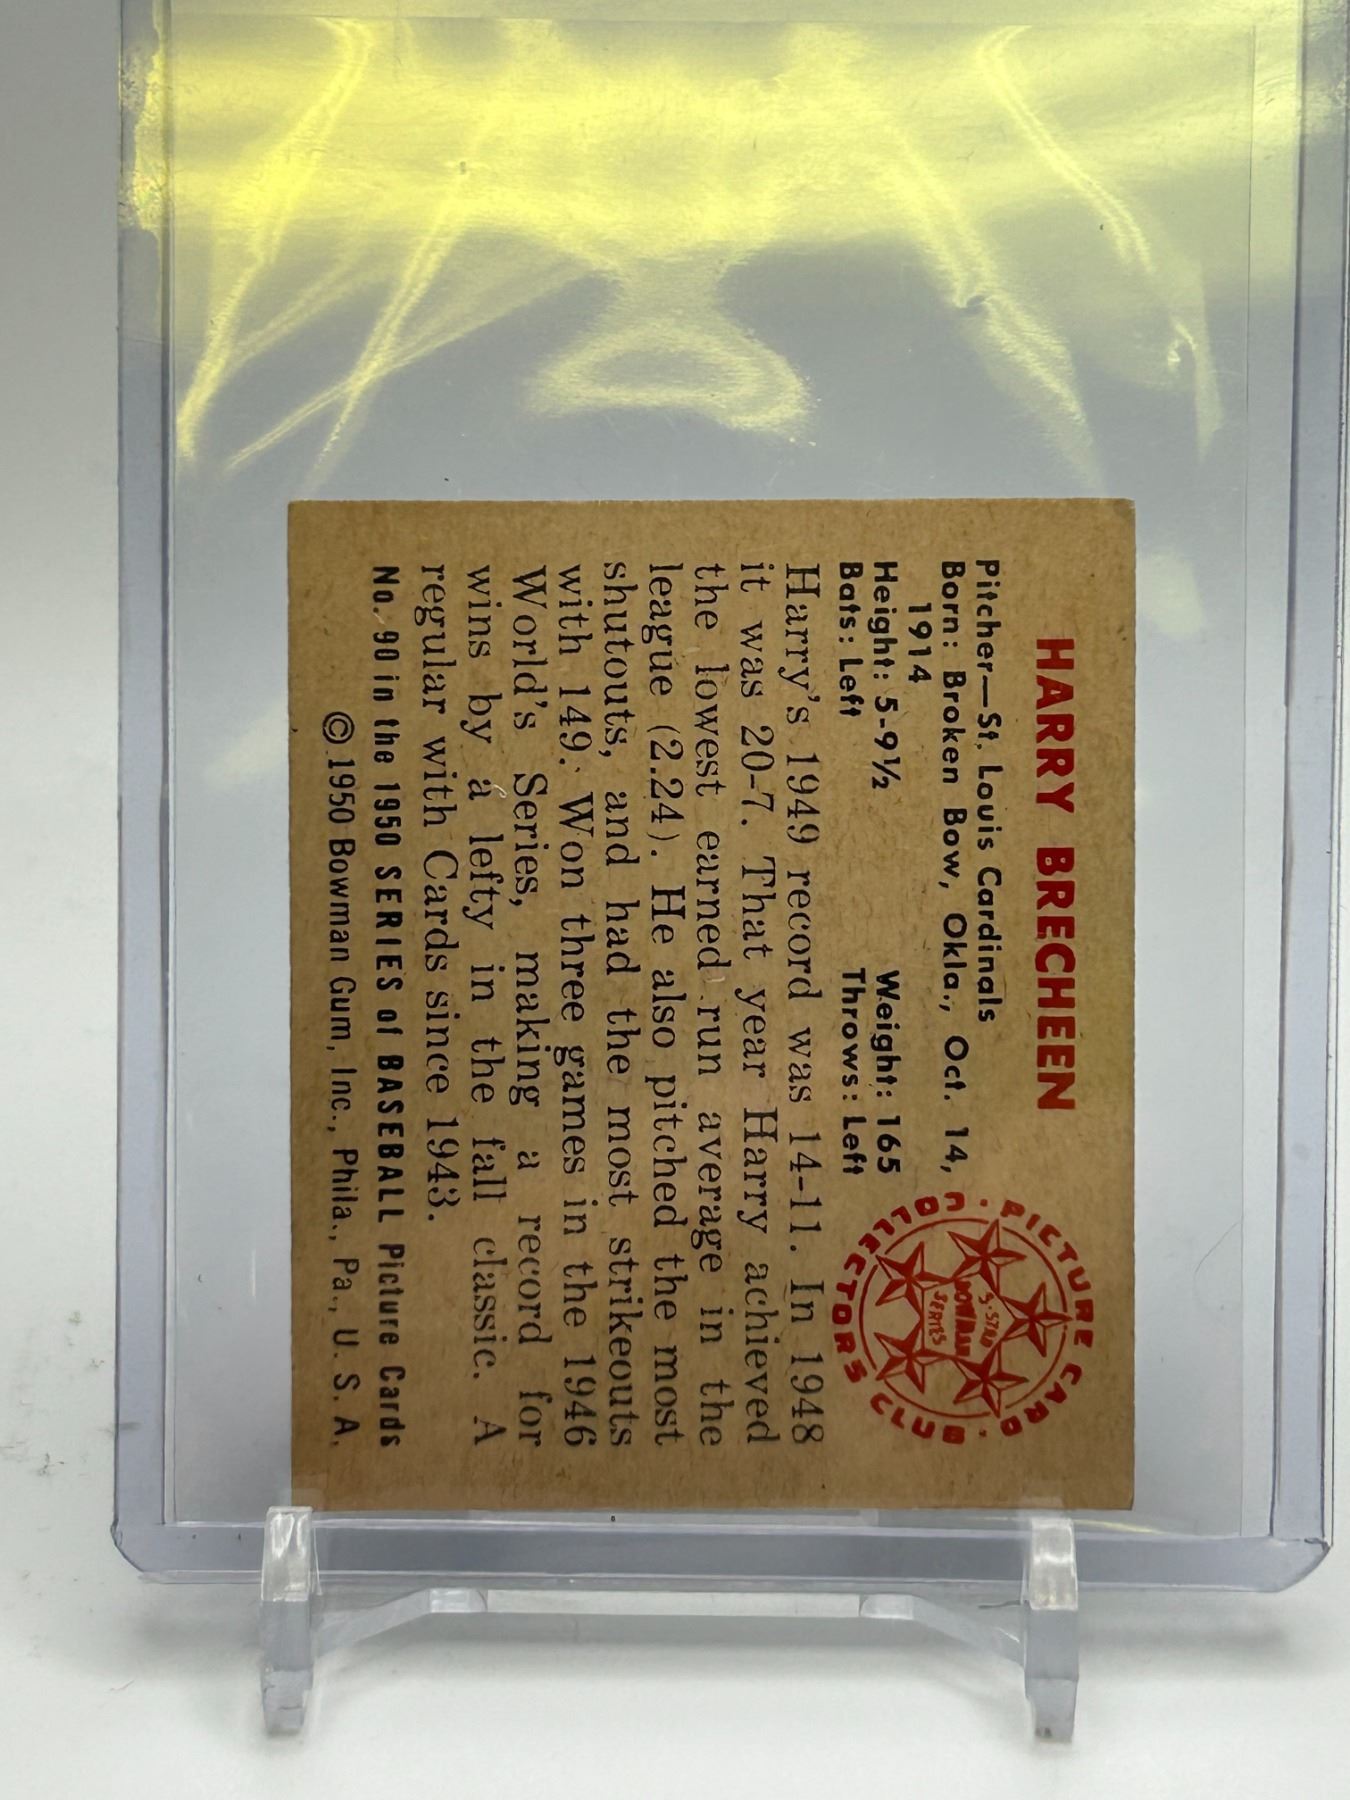 HARRY BRECHEEN
Pitcher—St. Louis Cardinals
Born: Broken Bow, Okla., Oct. 14,
1914
Height: 5-9½ Weight: 165
Bats: Left Throws: Left
PICTURE CARD · COLLECTORS CLUB ·
5-STAR
BOWMAN
SERIES
Harry's 1949 record was 14-11. In 1948
it was 20-7. That year Harry achieved
the lowest earned run average in the
league (2.24). He also pitched the most
shutouts, and had the most strikeouts
with 149. Won three games in the 1946
World's Series, making a record for
wins by a lefty in the fall classic. A
regular with Cards since 1943.
No. 90 in the 1950 SERIES of BASEBALL Picture Cards
© 1950 Bowman Gum, Inc., Phila., Pa., U. S. A.